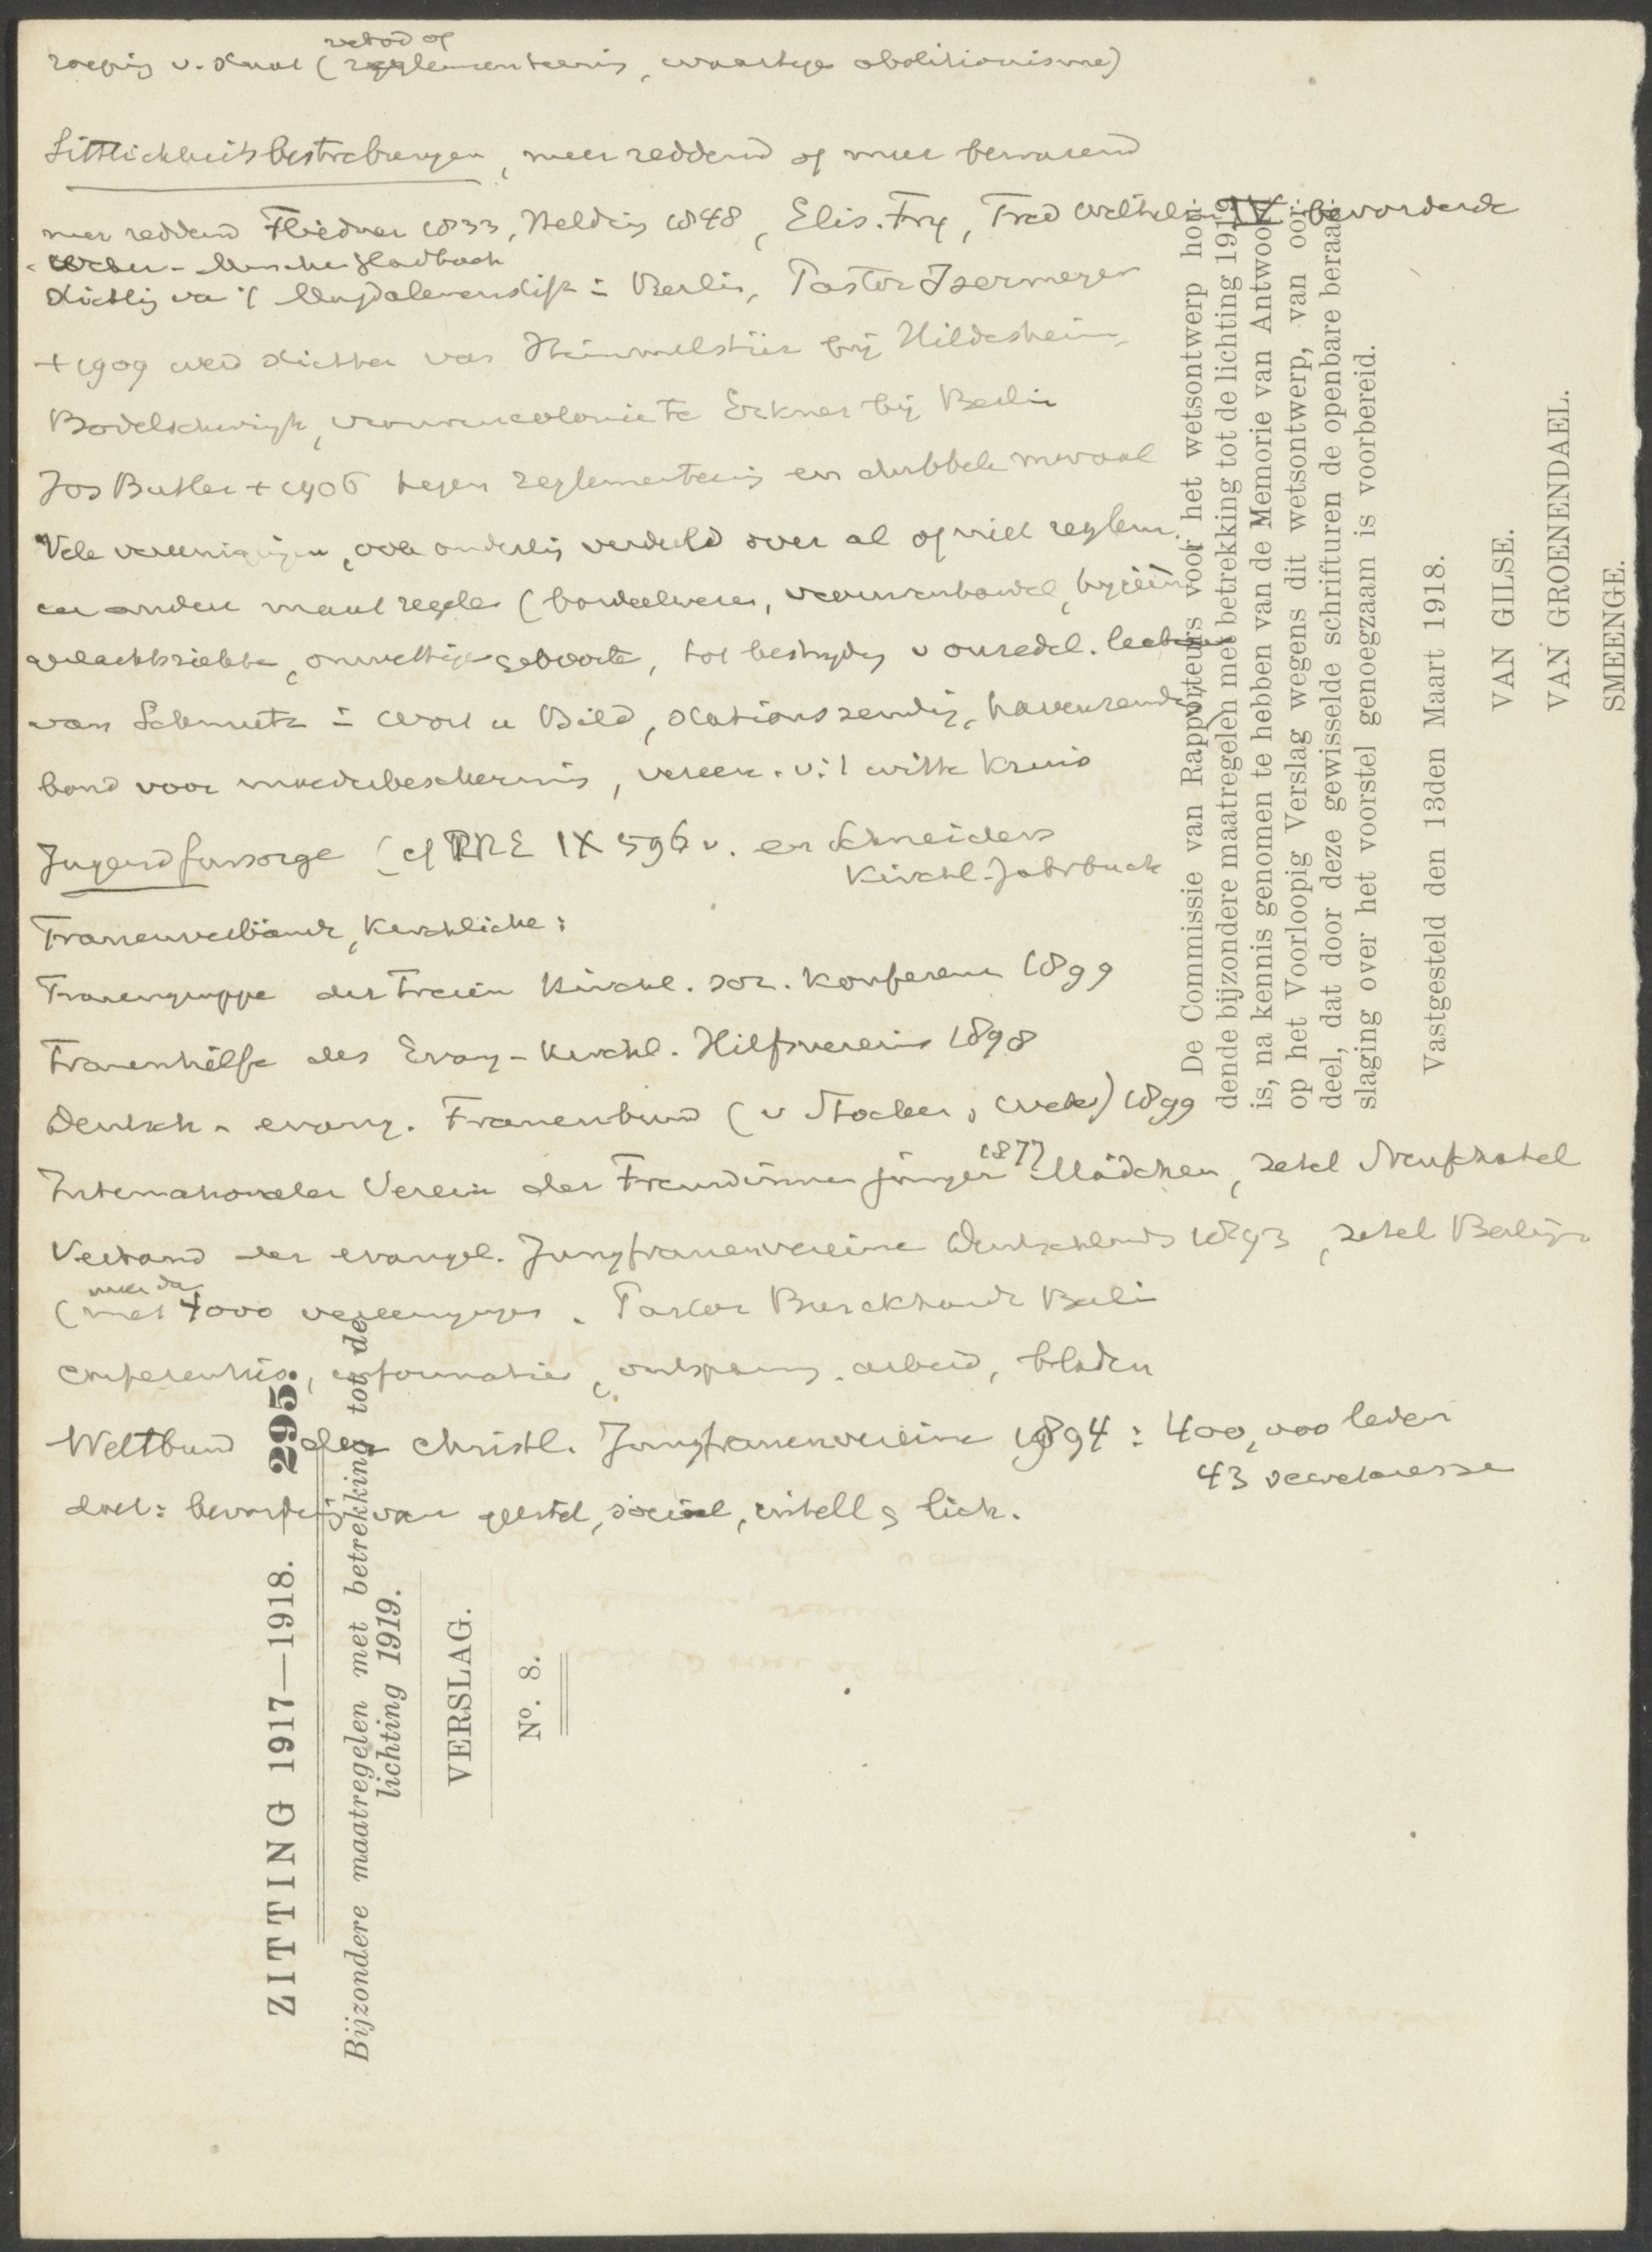 verbod of
roeping v. Staat (reglementeering, waartege abolitionisme)
Sittlichkeitsbestrebungen, meer reddend of meer bewarend
meer reddend Fliedner 1833, Heldring 1848, Elis. Fry, Fred Wilhelm IV bevorderde
Weber - München Gladbach
stichting van 't Magdalenenstift in Berlin, Pastor Isermeyer
+ 1909 werd stichter van Himmelsthür bij Hildesheim,
Bodelschwingh, vrouwencolonie te Erkner bij Berlin
Jos Butler + 1906 tegen reglementeering en dubbele moraal
Vele vereenigingen, ook onderling verdeeld over al of niet reglem.
en andere maatregelen (bordeelwezen, vrouwenhandel,
geslachtsziekten, onwettige geboorte, tot bestrijding v onzedel.
van Schmutz in Wort u Bild, stationszending, havenzending
bond voor moederbescherming, vereen. v. 't witte Kruis
Jugendfürsorge (cf PRE IX 596 v. en Schneiders
Kirchl. Jahrbuch
Frauenverbände, Kirchliche:
Frauengruppe der Freien Kirchl. soz. Konferenz 1899
Frauenhilfe des Evang-Kirchl. Hilfsvereins 1898
Deutsch-evang. Frauenbund (v Stöcker, Weber) 1899
1877
Internationaler Verein der Freundinnen junger Mädchen, zetel Neufchatel
Verband der evangel. Jungfrauenvereine Deutschlands 1893, zetel Berlijn
meer dan
(met 4000 vereenigingen. Pastor Burckhardt Berlin
conferenties, informaties, ontspanning, arbeid, bladen
Weltbund der christl. Jungfrauenvereine 1894: 400,000 leden
43 secretaresse
doel: bevordering van geestel, sociaal, intell & lich.
De Commissie van Rapporteurs voor het wetsontwerp hou-
dende bijzondere maatregelen met betrekking tot de lichting 1919
is, na kennis genomen te hebben van de Memorie van Antwoord
op het Voorloopig Verslag wegens dit wetsontwerp, van oor-
deel, dat door deze gewisselde schrifturen de openbare beraad-
slaging over het voorstel genoegzaam is voorbereid.
Vastgesteld den 13den Maart 1918.
VAN GILSE.
VAN GROENENDAEL.
SMEENGE.
ZITTING 1917—1918. — 295.
Bijzondere maatregelen met betrekking tot de
lichting 1919.
VERSLAG.
N°. 8.